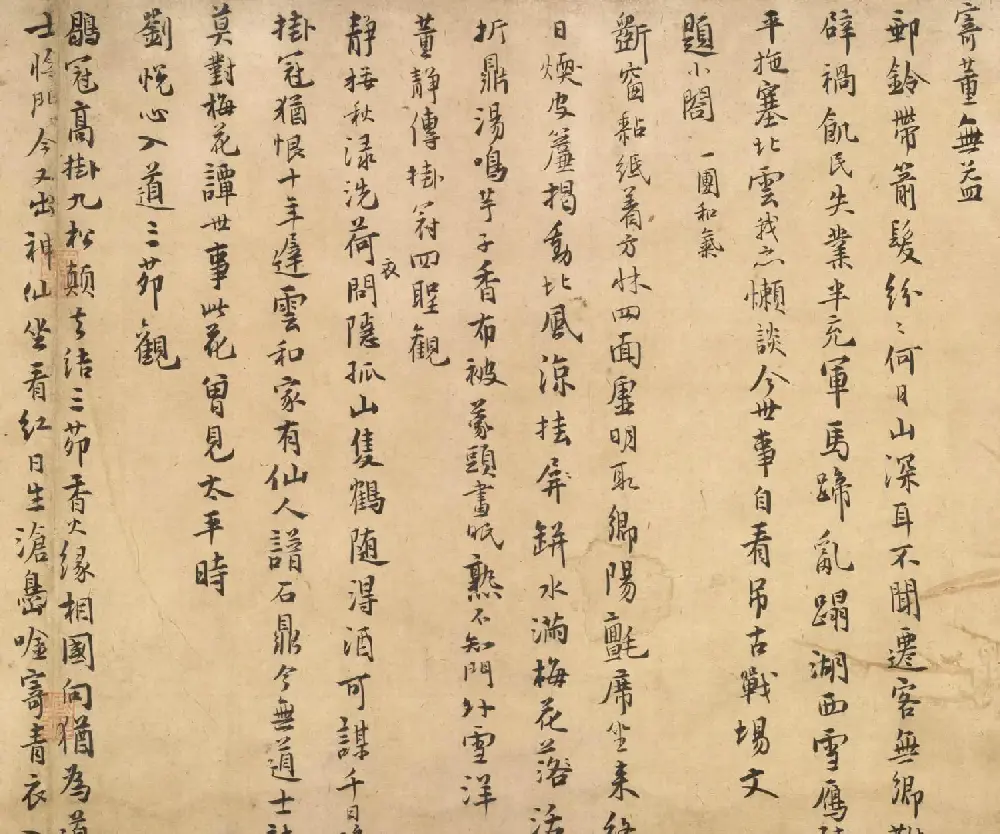 寄董無益
郵鈴帶箭髮紛〻何日山深耳不聞遷客無卿
辟禍飢民失業半充軍馬蹄亂蹋湖西雪鴈
平拖塞北雲我亦懶談今世事自看吊古戰場文
題小閤 一團和氣
斲窗黏紙着方牀四面虛明取卿陽氈席坐来
日煗皮簾揭動北風涼挂屏缾水滿梅花落活
折鼎湯鳴芋子香布被蒙頭晝眠熟不知門外雪洋
董靜傳掛冠四聖觀
靜接秋淥洗荷衣問隱孤山隻鶴隨得酒可謀千日
掛冠猶恨十年遲雲和家有仙人譜石鼎今無道士
莫對梅花譚世事此花曾見太平時
劉悅心入道三茆觀
鶡冠高掛九松顛去結三茆香火緣相國向猶為道
士 今又出神仙坐看紅日生滄島唫寄青衣